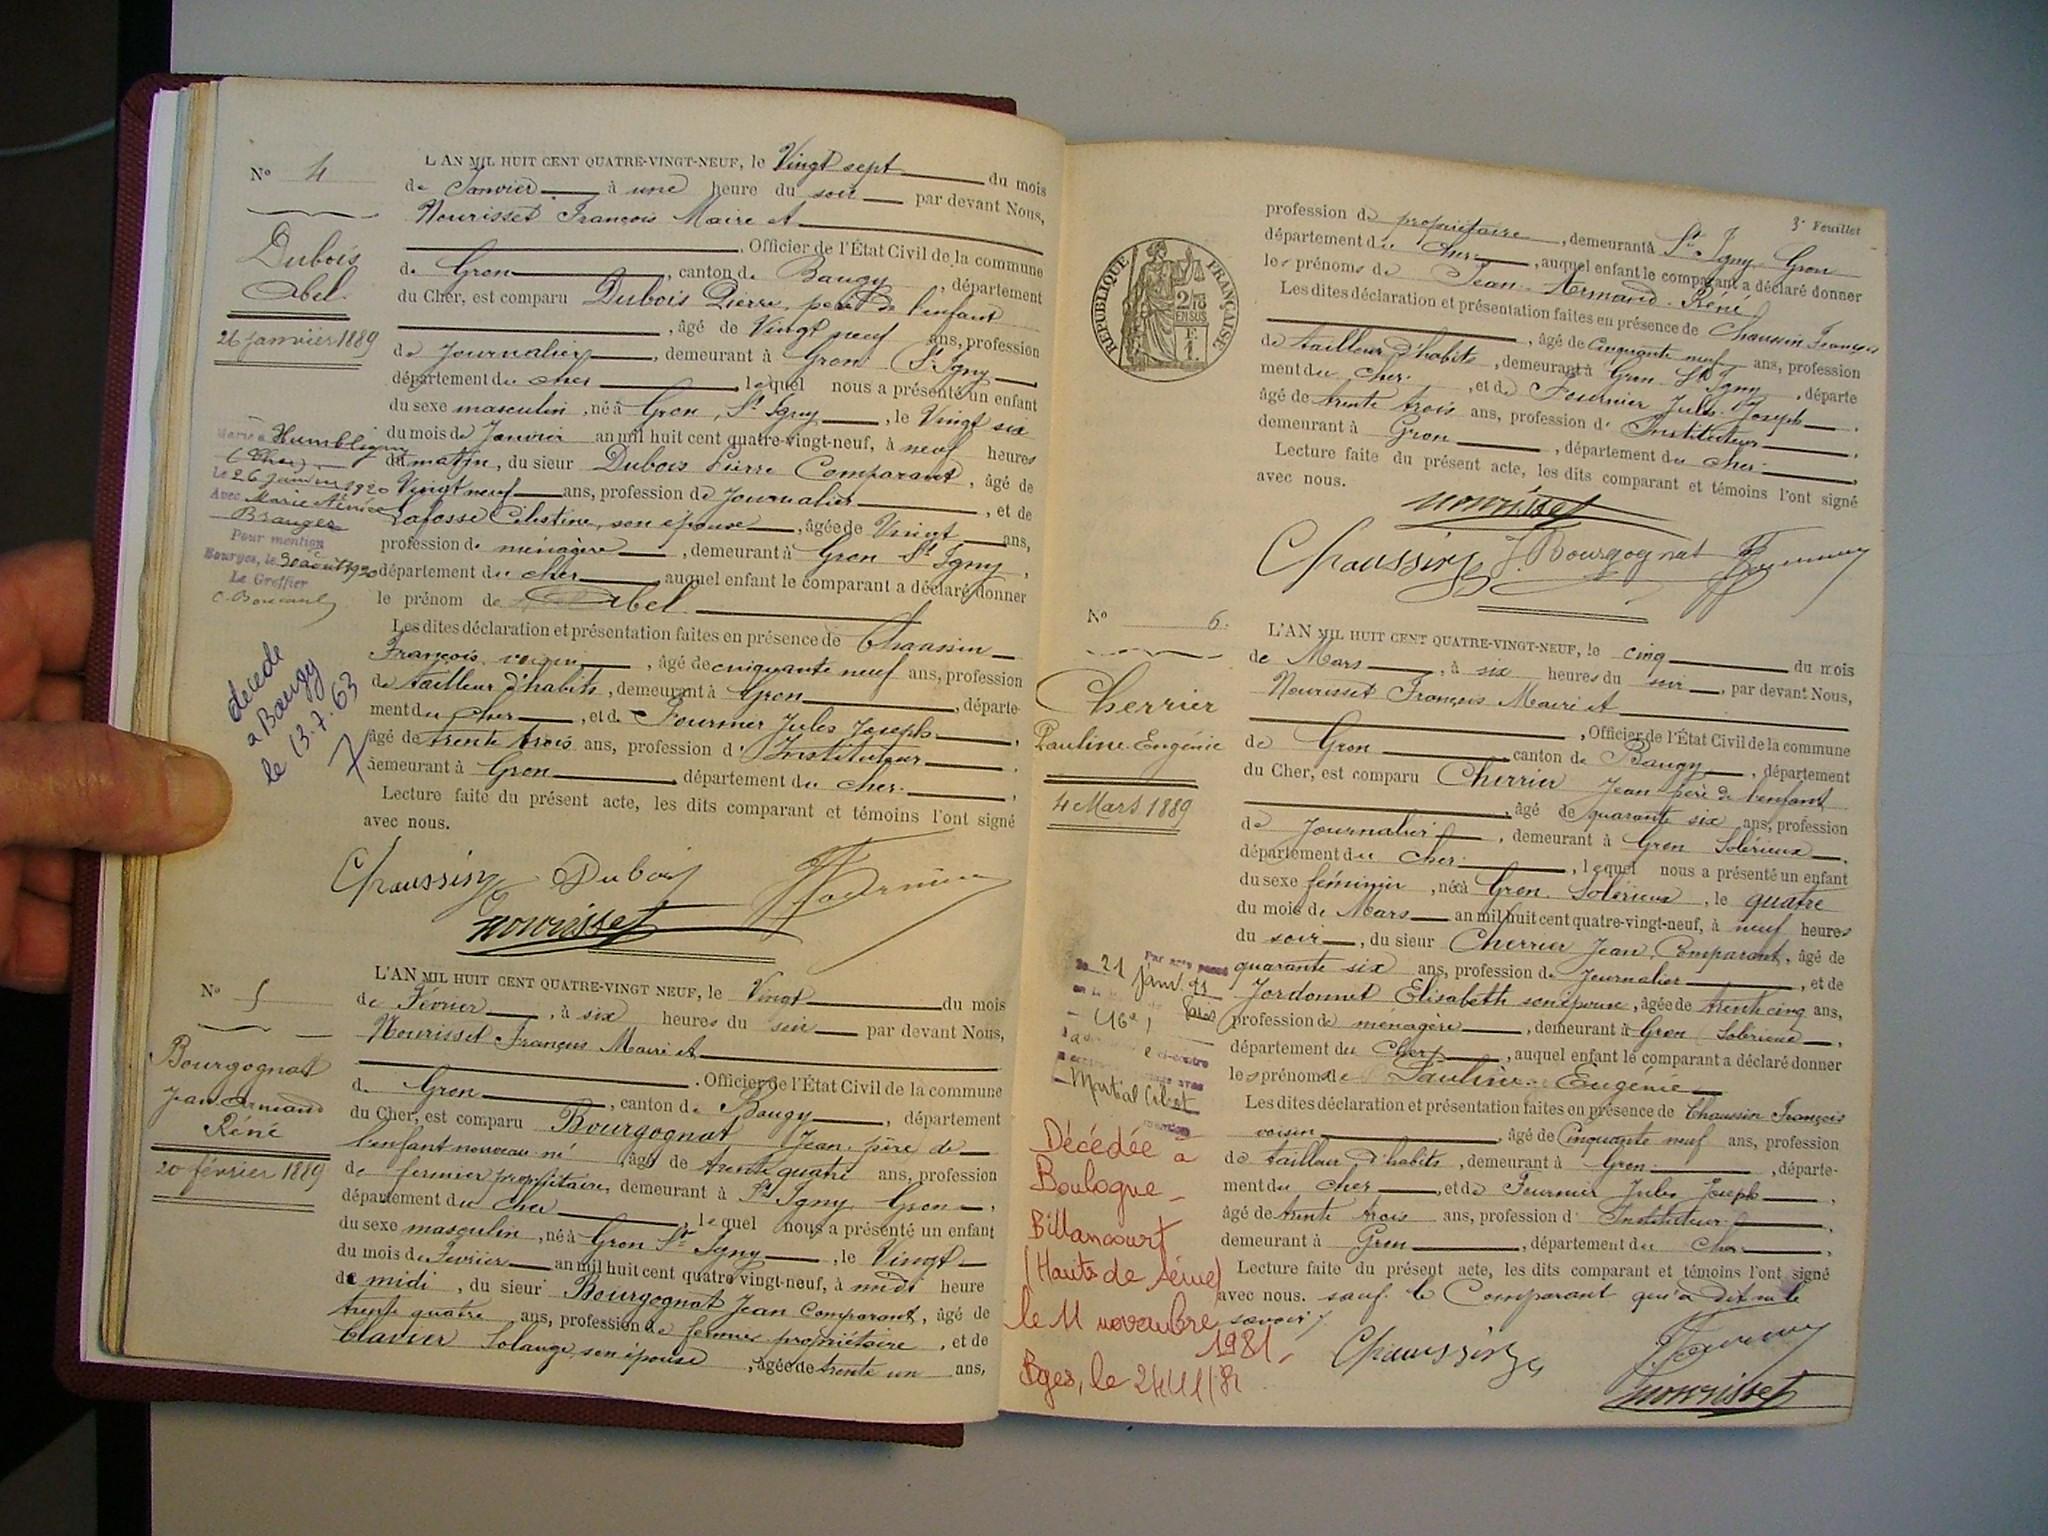 N° 4
Dubois
Abel
26 janvier 1889
Marié à Humbligny
(Cher)
Le 26 janvier 1920
Avec Marie
Pour mention
Bourges, le 30 août 1920
Le Greffier
décédé
a Baugy
le 13.7.63
L'AN MIL HUIT CENT QUATRE-VINGT-NEUF, le Vingt sept du mois
de Janvier à une heure du soir par devant Nous,
Nourisset François Maire et
Officier de l'État Civil de la commune
de Gron, canton de Baugy, département
du Cher, est comparu Dubois Pierre, père de l'enfant
, âgé de Vingt neuf ans, profession
de Journalier, demeurant à Gron St Igny,
département du cher, lequel nous a présenté un enfant
du sexe masculin, né à Gron, St Igny, le Vingt six
du mois de Janvier an mil huit cent quatre-vingt-neuf, à neuf heures
du matin, du sieur Dubois Pierre Comparant, âgé de
Vingt neuf ans, profession de Journalier, et de
Lafosse Célestine, son épouse, âgée de Vingt ans,
profession de ménagère, demeurant à Gron St Igny,
département du cher, auquel enfant le comparant a déclaré donner
le prénom de Abel.
Les dites déclaration et présentation faites en présence de Chaussin
François voisin, âgé de cinquante neuf ans, profession
de tailleur d'habits, demeurant à Gron, départe-
ment du cher, et de Fournier Jules Joseph,
âgé de trente trois ans, profession d'Instituteur,
demeurant à Gron département du cher.
Lecture faite du présent acte, les dits comparant et témoins l'ont signé
avec nous.
Chaussin Dubois Fournier
Nourisset
N° 5
Bourgognat
Jean Armand
Réné
20 février 1889
L'AN MIL HUIT CENT QUATRE-VINGT NEUF, le Vingt du mois
de Février, à six heures du soir par devant Nous,
Nourisset François Maire et
Officier de l'État Civil de la commune
de Gron, canton de Baugy, département
du Cher, est comparu Bourgognat Jean, père de
l'enfant nouveau né, âgé de trente quatre ans, profession
de fermier propriétaire, demeurant à St Igny Gron,
département du Cher, lequel nous a présenté un enfant
du sexe masculin, né à Gron St Igny, le Vingt
du mois de Février an mil huit cent quatre vingt-neuf, à midi heure
de midi, du sieur Bourgognat Jean Comparant, âgé de
trente quatre ans, profession de fermier propriétaire, et de
Clavier Solange, son épouse, âgée de trente un ans,
3e Feuillet
RÉPUBLIQUE FRANÇAISE
2/10
EN SUS
profession de propriétaire, demeurant à St Igny Gron
département du cher, auquel enfant le comparant a déclaré donner
les prénoms de Jean-Armand-Réné
Les dites déclaration et présentation faites en présence de Chaussin François
, âgé de Cinquante neuf ans, profession
de tailleur d'habits, demeurant à Gron St Igny, départe
ment du cher, et de Fournier Jules Joseph,
âgé de trente trois ans, profession d'Instituteur,
demeurant à Gron, département du cher.
Lecture faite du présent acte, les dits comparant et témoins l'ont signé
avec nous.
Nourisset
Chaussin J. Bourgognat Fournier
N° 6.
Cherrier
Pauline Eugénie
4 Mars 1889
Par acte passé
le 21 janv.
Paris
16e
Martial
Décédée a
Boulogne-
Billancourt
(Hauts de Seine)
le 11 novembre
1981.
Bges, le 24/11/81
L'AN MIL HUIT CENT QUATRE-VINGT-NEUF, le cinq du mois
de Mars, à six heures du soir, par devant Nous,
Nourisset François Maire et
, Officier de l'État Civil de la commune
de Gron canton de Baugy, département
du Cher, est comparu Cherrier Jean père de l'enfant
, âgé de quarante six ans, profession
de Journalier, demeurant à Gron Solérieux,
département du cher, lequel nous a présenté un enfant
du sexe féminin, née à Gron Solérieux, le quatre
du mois de Mars an mil huit cent quatre-vingt-neuf, à neuf heures
du soir, du sieur Cherrier Jean, Comparant, âgé de
quarante six ans, profession de Journalier, et de
Jordonnet Elisabeth son épouse, âgée de trente cinq ans,
profession de ménagère, demeurant à Gron Solérieux,
département du Cher, auquel enfant le comparant a déclaré donner
les prénoms de Pauline-Eugénie
Les dites déclaration et présentation faites en présence de Chaussin François
voisin, âgé de Cinquante neuf ans, profession
de tailleur d'habits, demeurant à Gron, départe-
ment du cher, et de Fournier Jules Joseph,
âgé de trente trois ans, profession d'Instituteur,
demeurant à Gron, département du cher,
Lecture faite du présent acte, les dits comparant et témoins l'ont signé
avec nous. sauf le Comparant qui a dit ne le
savoir
Chaussin Fournier
Nourisset